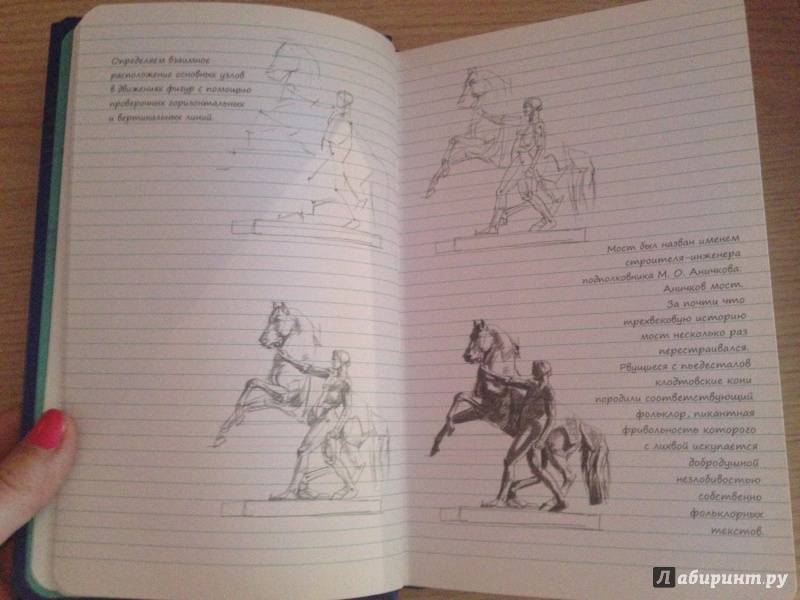 Определяем взаимное
расположение основных узлов
в движениях фигур с помощью
проверочных горизонтальных
и вертикальных линий.
Мост был назван именем
строителя-инженера
подполковника М. О. Аничкова:
Аничков мост.
За почти что
трехвековую историю
мост несколько раз
перестраивался.
Рвущиеся с пьедесталов
клодтовские кони
породили соответствующий
фольклор, пикантная
фривольность которого
с лихвой искупается
добродушной
незлобивостью
собственно
фольклорных
текстов.
Лабиринт.ру